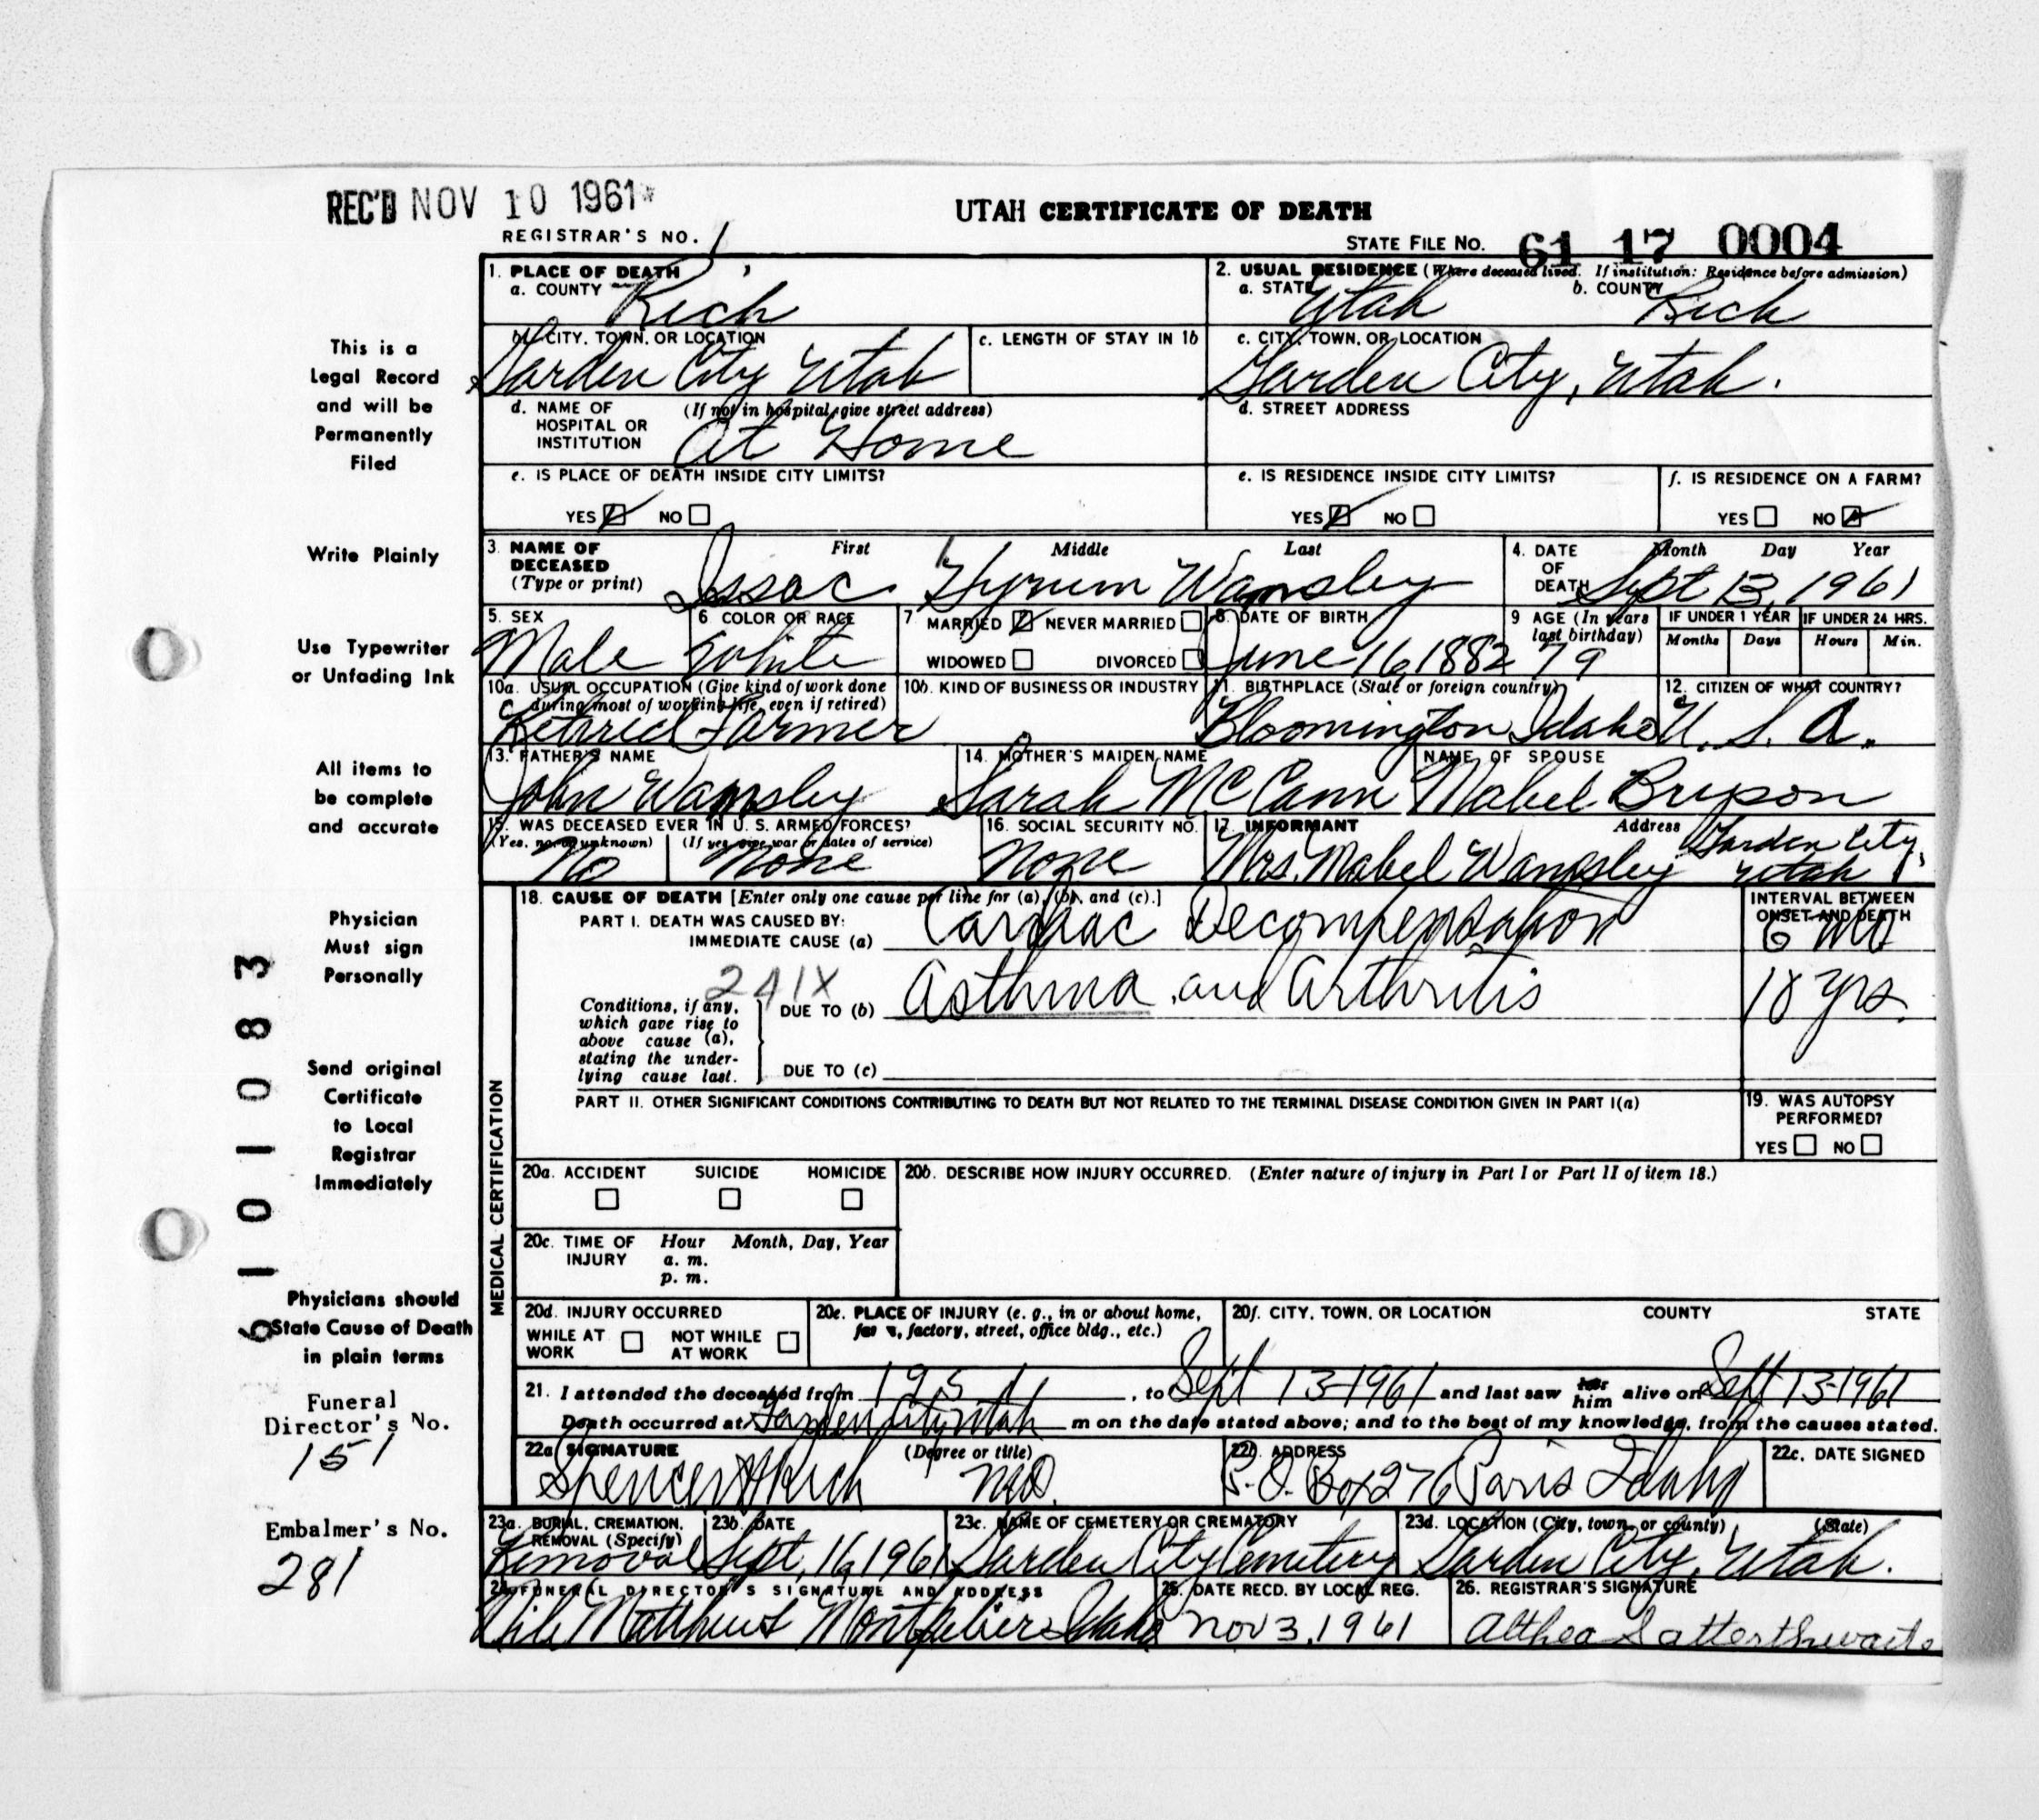 REC'D NOV 10 1961
UTAH CERTIFICATE OF DEATH
REGISTRAR'S NO. 1
STATE FILE NO. 61 17 0004
1. PLACE OF DEATH
a. COUNTY Rich
2. USUAL RESIDENCE (Where deceased lived. If institution: Residence before admission)
a. STATE Utah b. COUNTY Rich
b. CITY, TOWN, OR LOCATION Garden City Utah
c. LENGTH OF STAY IN 1b
c. CITY, TOWN, OR LOCATION Garden City, Utah.
d. NAME OF HOSPITAL OR INSTITUTION (If not in hospital, give street address) At Home
d. STREET ADDRESS
e. IS PLACE OF DEATH INSIDE CITY LIMITS?
YES NO
e. IS RESIDENCE INSIDE CITY LIMITS?
YES NO
f. IS RESIDENCE ON A FARM?
YES NO
3. NAME OF DECEASED (Type or print) First Middle Last
Issac Hyrum Wamsley
4. DATE OF DEATH Month Day Year
Sept 13, 1961
5. SEX Male
6 COLOR OR RACE White
7 MARRIED NEVER MARRIED
WIDOWED DIVORCED
8. DATE OF BIRTH June 16, 1882
9 AGE (In years last birthday) 79
IF UNDER 1 YEAR Months Days
IF UNDER 24 HRS. Hours Min.
10a. USUAL OCCUPATION (Give kind of work done during most of working life, even if retired)
Retired Farmer
10b. KIND OF BUSINESS OR INDUSTRY
11. BIRTHPLACE (State or foreign country)
Bloomington Idaho
12. CITIZEN OF WHAT COUNTRY?
U. S. A.
13. FATHER'S NAME
John Wamsley
14. MOTHER'S MAIDEN NAME
Sarah McCann
NAME OF SPOUSE
Mabel Bryson
15. WAS DECEASED EVER IN U. S. ARMED FORCES?
(Yes, no, or unknown) (If yes, give war or dates of service)
No None
16. SOCIAL SECURITY NO.
None
17. INFORMANT Address
Mrs. Mabel Wamsley Garden City, Utah
18. CAUSE OF DEATH [Enter only one cause per line for (a), (b), and (c).]
PART I. DEATH WAS CAUSED BY:
IMMEDIATE CAUSE (a) Cardiac Decompensation
INTERVAL BETWEEN ONSET AND DEATH
6 Mo
241X
Conditions, if any, which gave rise to above cause (a), stating the underlying cause last.
DUE TO (b) Asthma and Arthritis
18 yrs.
DUE TO (c)
PART II. OTHER SIGNIFICANT CONDITIONS CONTRIBUTING TO DEATH BUT NOT RELATED TO THE TERMINAL DISEASE CONDITION GIVEN IN PART I(a)
19. WAS AUTOPSY PERFORMED?
YES NO
MEDICAL CERTIFICATION
20a. ACCIDENT SUICIDE HOMICIDE
20b. DESCRIBE HOW INJURY OCCURRED. (Enter nature of injury in Part I or Part II of item 18.)
20c. TIME OF INJURY Hour Month, Day, Year
a. m.
p. m.
20d. INJURY OCCURRED
WHILE AT WORK NOT WHILE AT WORK
20e. PLACE OF INJURY (e. g., in or about home, farm, factory, street, office bldg., etc.)
20f. CITY, TOWN, OR LOCATION COUNTY STATE
21. I attended the deceased from , to Sept 13-1961 and last saw her him alive on Sept 13-1961
Death occurred at Garden City Utah m on the date stated above; and to the best of my knowledge, from the causes stated.
22a. SIGNATURE (Degree or title)
Spencer H Rich M.D.
22b. ADDRESS
P.O. Box 276 Paris Idaho
22c. DATE SIGNED
23a. BURIAL, CREMATION, REMOVAL (Specify)
Removal
23b. DATE
Sept, 16, 1961
23c. NAME OF CEMETERY OR CREMATORY
Garden City Cemetery
23d. LOCATION (City, town, or county) (State)
Garden City, Utah.
24. FUNERAL DIRECTOR'S SIGNATURE AND ADDRESS
Matthews Montpelier Idaho
25. DATE RECD. BY LOCAL REG.
Nov 3, 1961
26. REGISTRAR'S SIGNATURE
Althea Satterthwaite
This is a
Legal Record
and will be
Permanently
Filed
Write Plainly
Use Typewriter
or Unfading Ink
All items to
be complete
and accurate
Physician
Must sign
Personally
Send original
Certificate
to Local
Registrar
Immediately
Physicians should
State Cause of Death
in plain terms
6101083
Funeral
Director's No.
151
Embalmer's No.
281